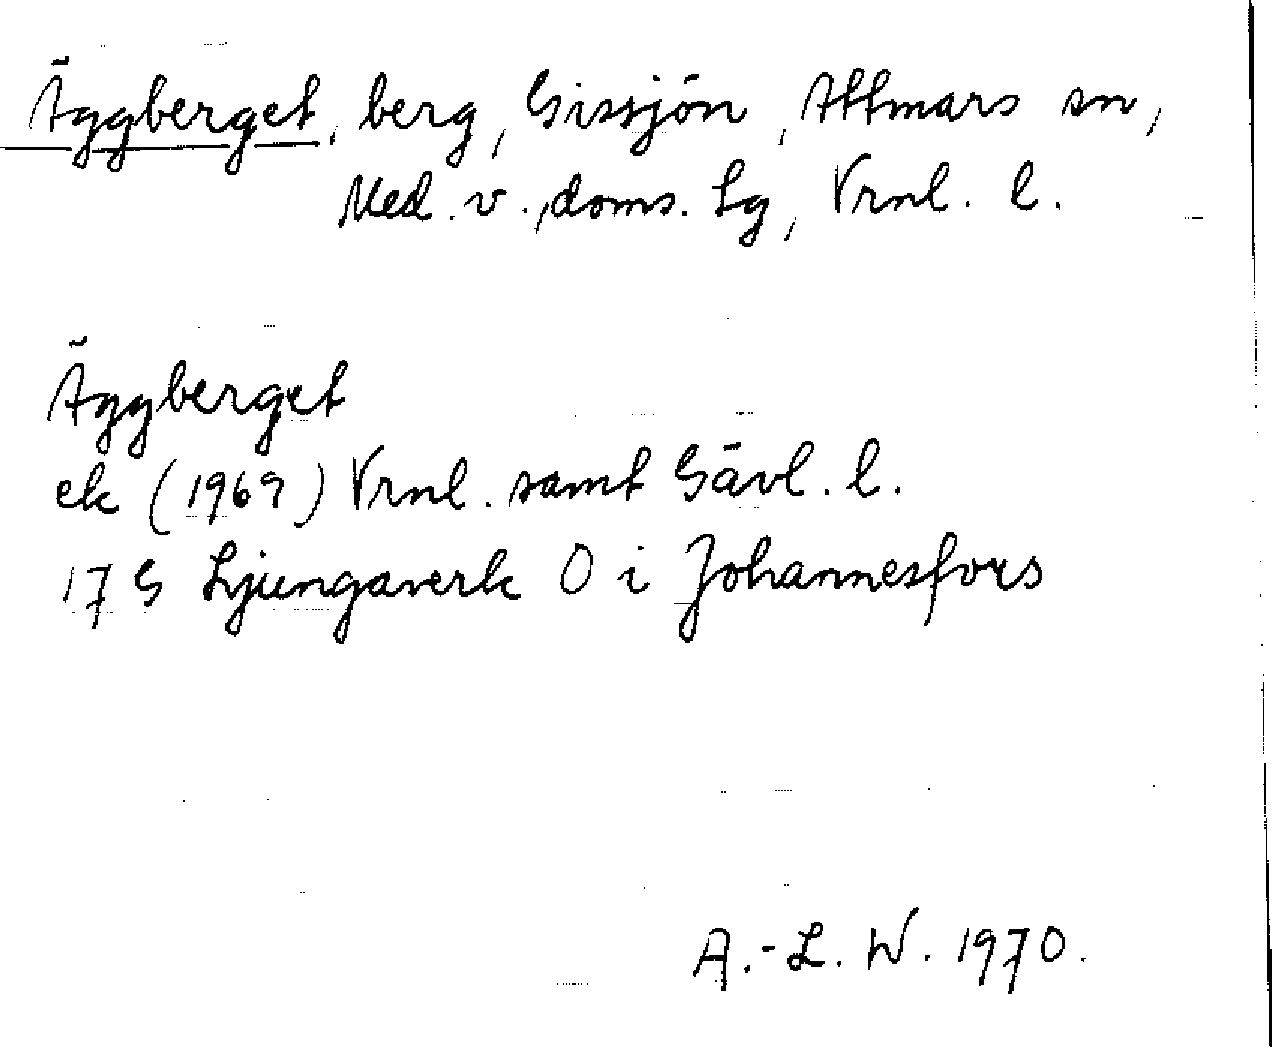 Äggberget, berg, Gissjön, Attmars sn,
Med. v., doms. Lg, Vrnl. l.
Äggberget
ek (1969) Vrnl. samt Gävl. l.
17 G Ljungaverk O i Johannesfors
A.-L. W. 1970.